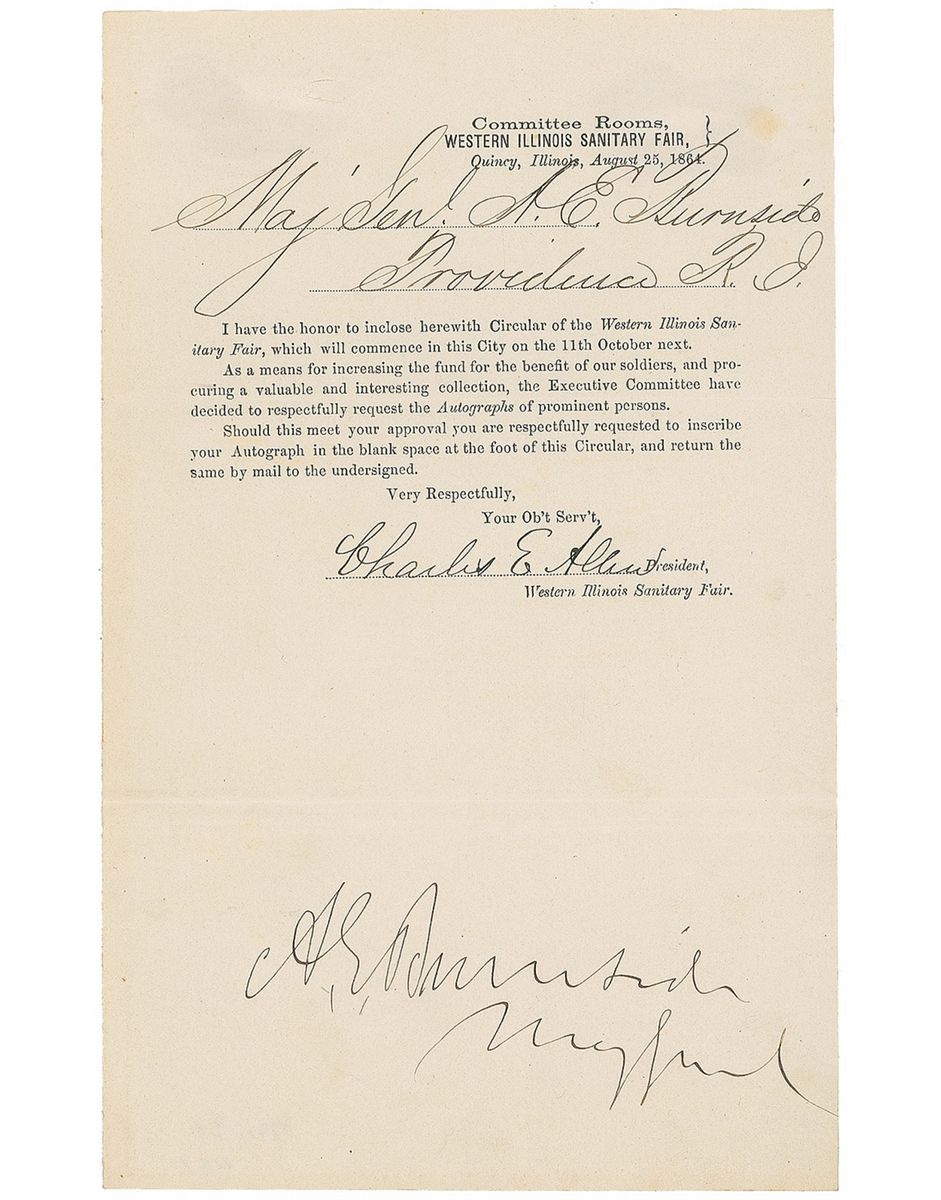 Committee Rooms,
WESTERN ILLINOIS SANITARY FAIR, }
Quincy, Illinois, August 25, 1864.
Maj Genl. A. E. Burnside
Providence R. I.
I have the honor to inclose herewith Circular of the Western Illinois San-
itary Fair, which will commence in this City on the 11th October next.
As a means for increasing the fund for the benefit of our soldiers, and pro-
curing a valuable and interesting collection, the Executive Committee have
decided to respectfully request the Autographs of prominent persons.
Should this meet your approval you are respectfully requested to inscribe
your Autograph in the blank space at the foot of this Circular, and return the
same by mail to the undersigned.
Very Respectfully,
Your Ob't Serv't,
Charles E Allen President,
Western Illinois Sanitary Fair.
A. E. Burnside
Maj Genl